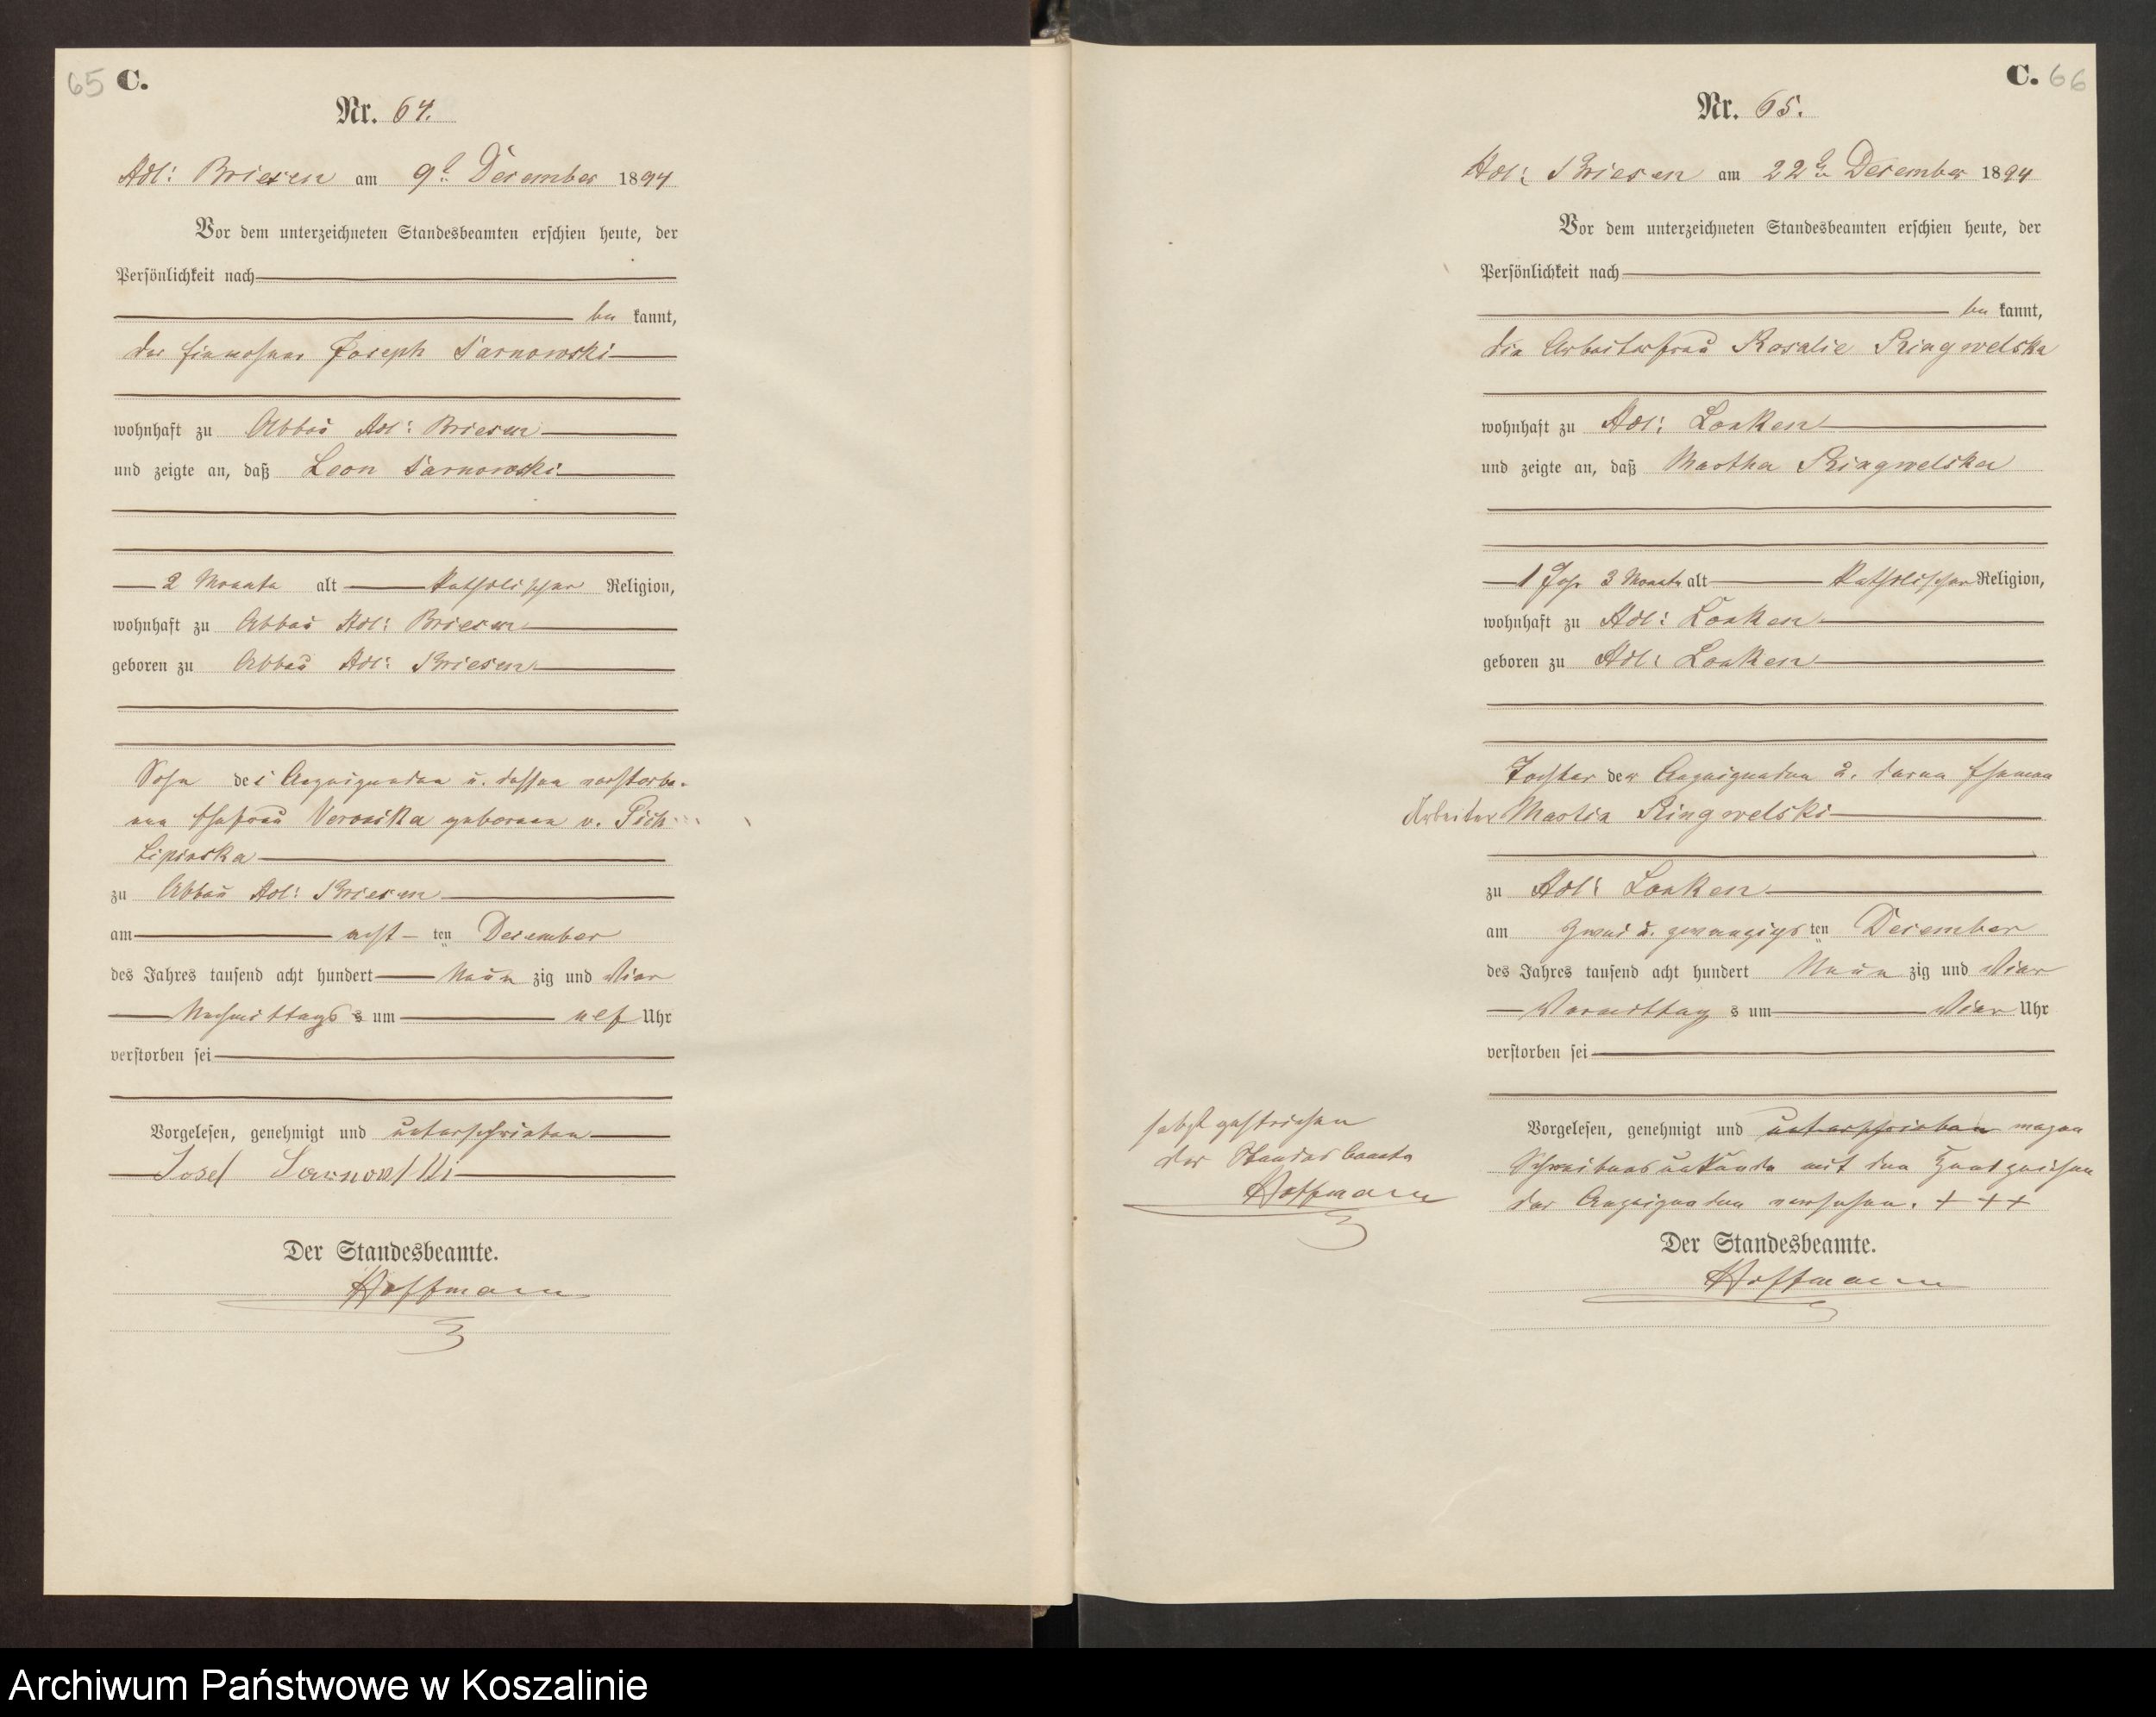 65 C.
Nr. 64.
Adl: Briesen am 9t December 1894
Vor dem unterzeichneten Standesbeamten erschien heute, der
Persönlichkeit nach
be kannt,
der Einwohner Joseph Tarnowski
wohnhaft zu Abbau Adl: Briesen
und zeigte an, daß Leon Tarnowski
2 Monate alt katholischer Religion,
wohnhaft zu Abbau Adl: Briesen
geboren zu Abbau Adl: Briesen
Sohn des Anzeigenden u. dessen verstorbe-
nen Ehefrau Veronika geborene v. Pich
Lipinska
zu Abbau Adl: Briesen
am acht ten December
des Jahres tausend acht hundert Neun zig und Vier
Nachmittags s um elf Uhr
verstorben sei
Vorgelesen, genehmigt und unterschrieben
Josef
Der Standesbeamte.
Hoffmann
C. 66
Nr. 65.
Adl: Briesen am 22ten December 1894
Vor dem unterzeichneten Standesbeamten erschien heute, der
Persönlichkeit nach
be kannt,
die Arbeiterfrau Rosalie Ringwelska
wohnhaft zu Adl: Lonken
und zeigte an, daß Martha Ringwelska
1 Jahr 3 Monate alt katholischer Religion,
wohnhaft zu Adl: Lonken
geboren zu Adl: Lonken
Tochter der Anzeigenden u. deren Ehemann
Arbeiter Martin Ringwelski
zu Adl: Lonken
am zwei u. zwanzigs ten December
des Jahres tausend acht hundert Neun zig und Vier
Vormittag s um Vier Uhr
verstorben sei
Vorgelesen, genehmigt und unterschrieben wegen
Schreibensunkunde mit den Handzeichen
der Anzeigenden versehen. + + +
Der Standesbeamte.
Hoffmann
gestrichen
der Standesbeamte
Hoffmann
Archiwum Państwowe w Koszalinie